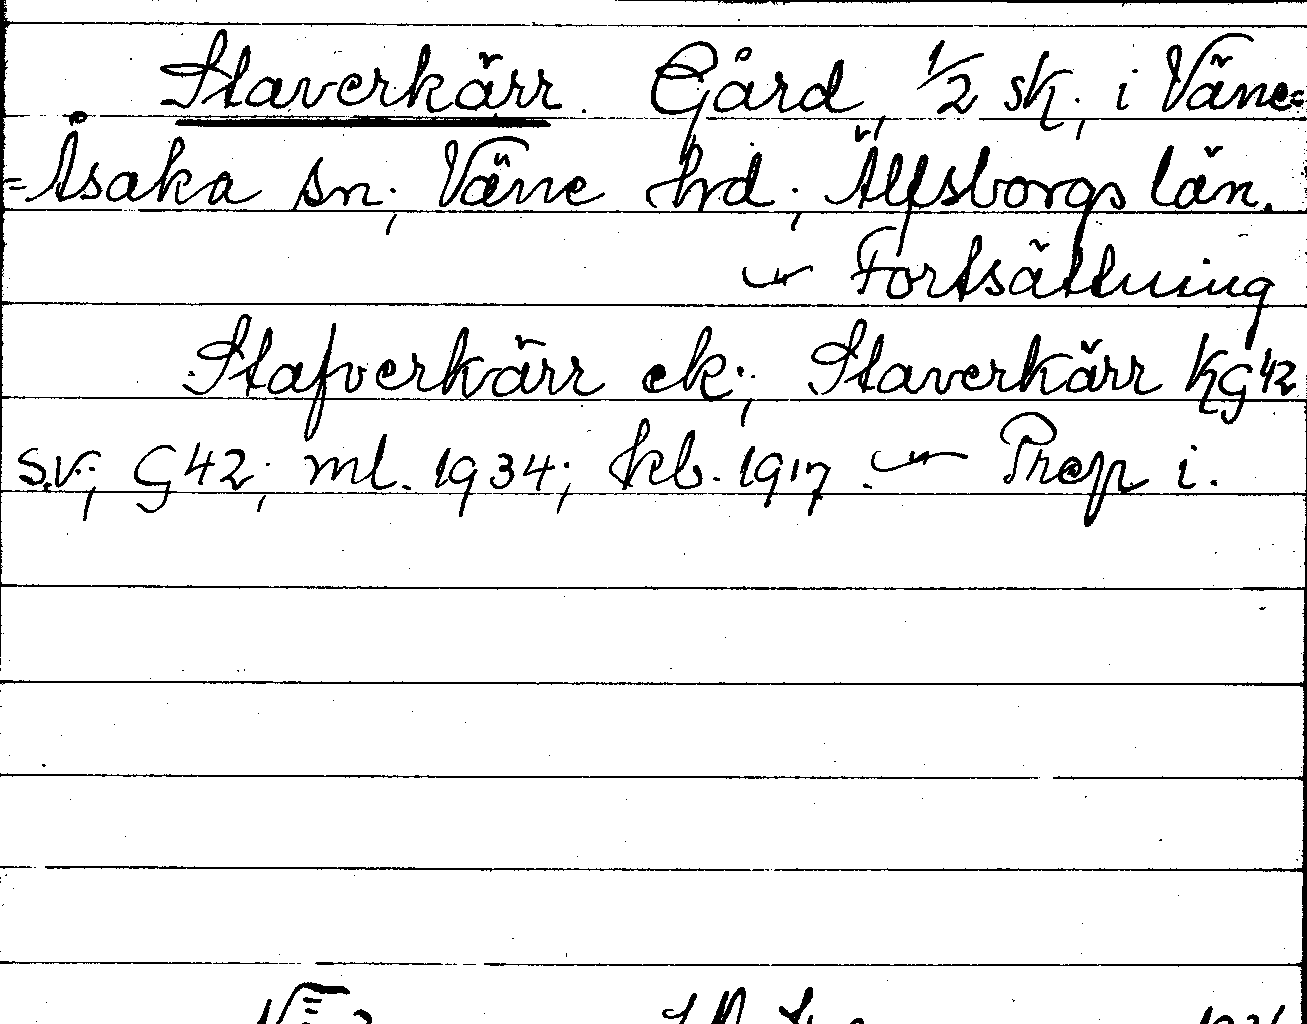 Staverkärr. Gård, 1/2 sk; i Väne=
=Åsaka sn; Väne hd; Älfsborgs län.
— Fortsättning
Stafverkärr ek; Staverkärr KG42
s.v; G42; ml. 1934; kb. 1917. — Prep i.